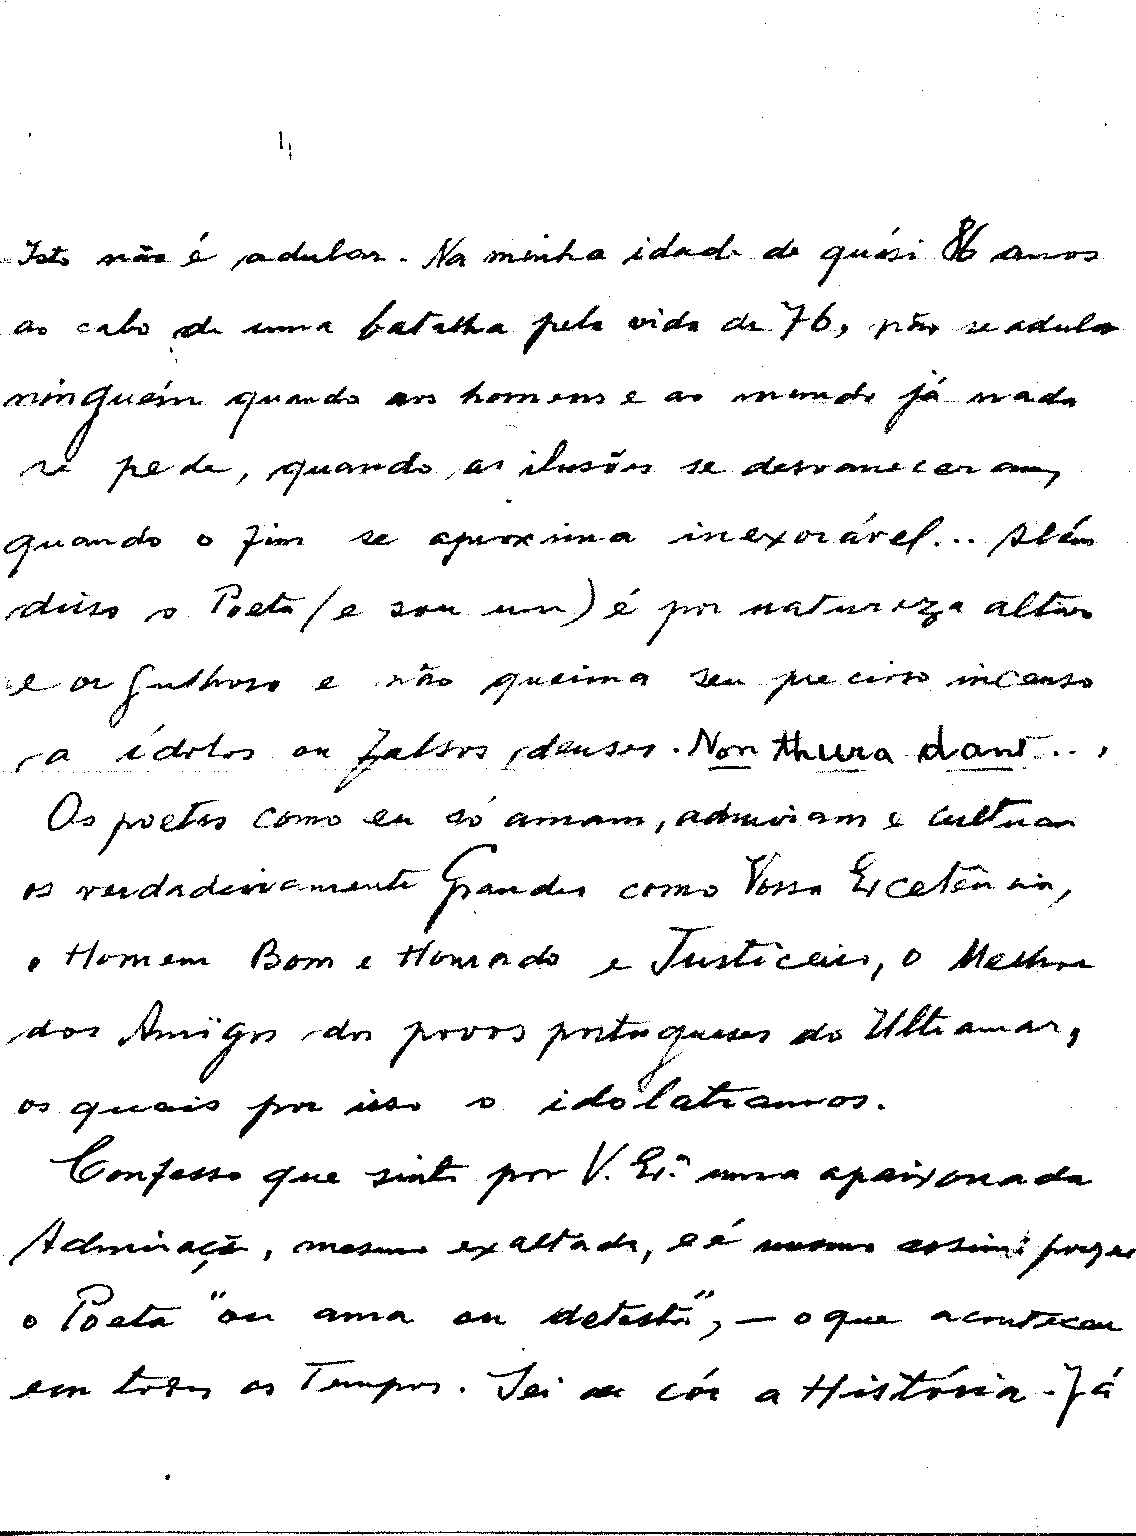 Isto não é adular. Na minha idade de quási 86 anos
ao cabo de uma batalha pela vida de 76, não se adula
ninguém quando aos homens e ao mundo já nada
se pede, quando as ilusões se desvaneceram,
quando o fim se aproxima inexorável... Além
disso o Poeta (e sou um) é por natureza altivo
e orgulhoso e não queima seu precioso incenso
a ídolos ou falsos deuses. Non thura dant...,
Os poetas como eu só amam, admiram e cultuam
os verdadeiramente Grandes como Vossa Excelência,
o Homem Bom e Honrado e Justiceiro, o Melhor
dos Amigos dos povos portugueses do Ultramar,
os quais por isso o idolatramos.
Confesso que sinto por V. Ex.ª uma apaixonada
Admiração, mesmo exaltada, e é mesmo assim porque
o Poeta "ou ama ou detesta", — o que aconteceu
em todos os Tempos. Sei de cór a História. Já